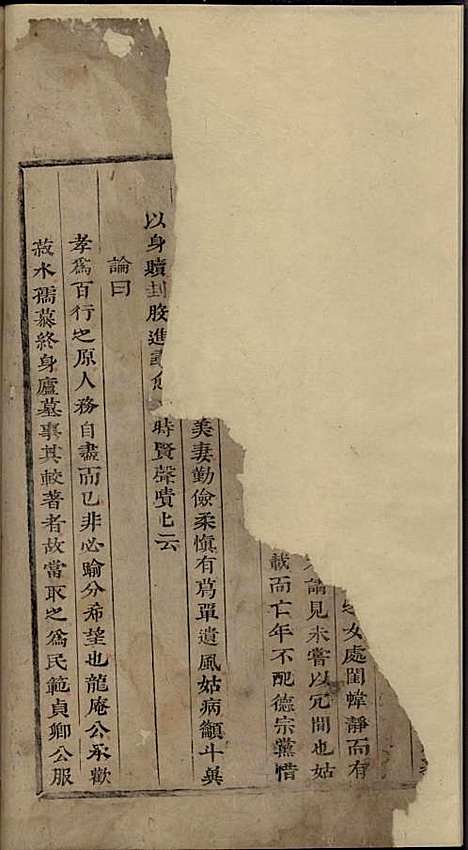 女處閨幃靜而有
謫見未嘗以冗間也姑
載而亡年不配德宗黨惜
美妻勤儉柔慎有爲單遺風姑病籲斗奠
以身贖刲股進 時賢聲嘖嘖云
論曰
孝爲百行之原人務自盡而已非必踰分希望也龍庵公承歡
菽水孺慕終身廬墓事其較著者故當取之爲民範貞卿公服